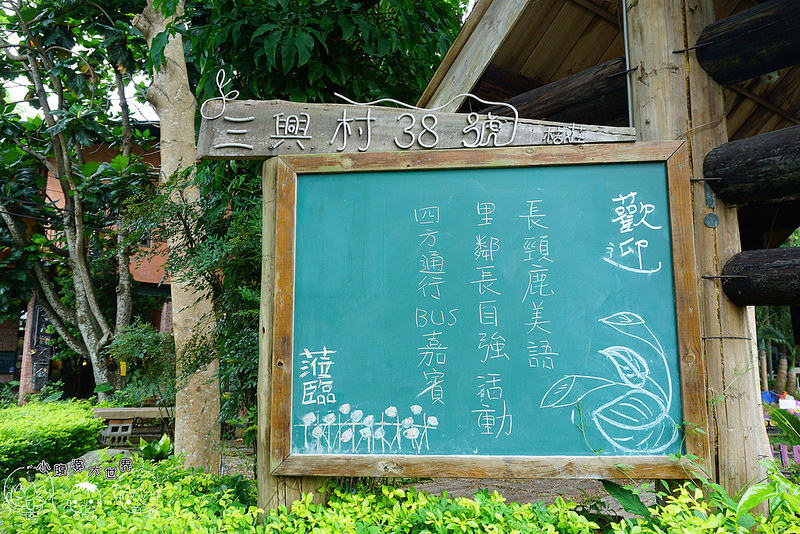 三興村38號
歡迎
長頸鹿美語
里鄰長自強活動
四方通行BUS嘉賓
蒞臨